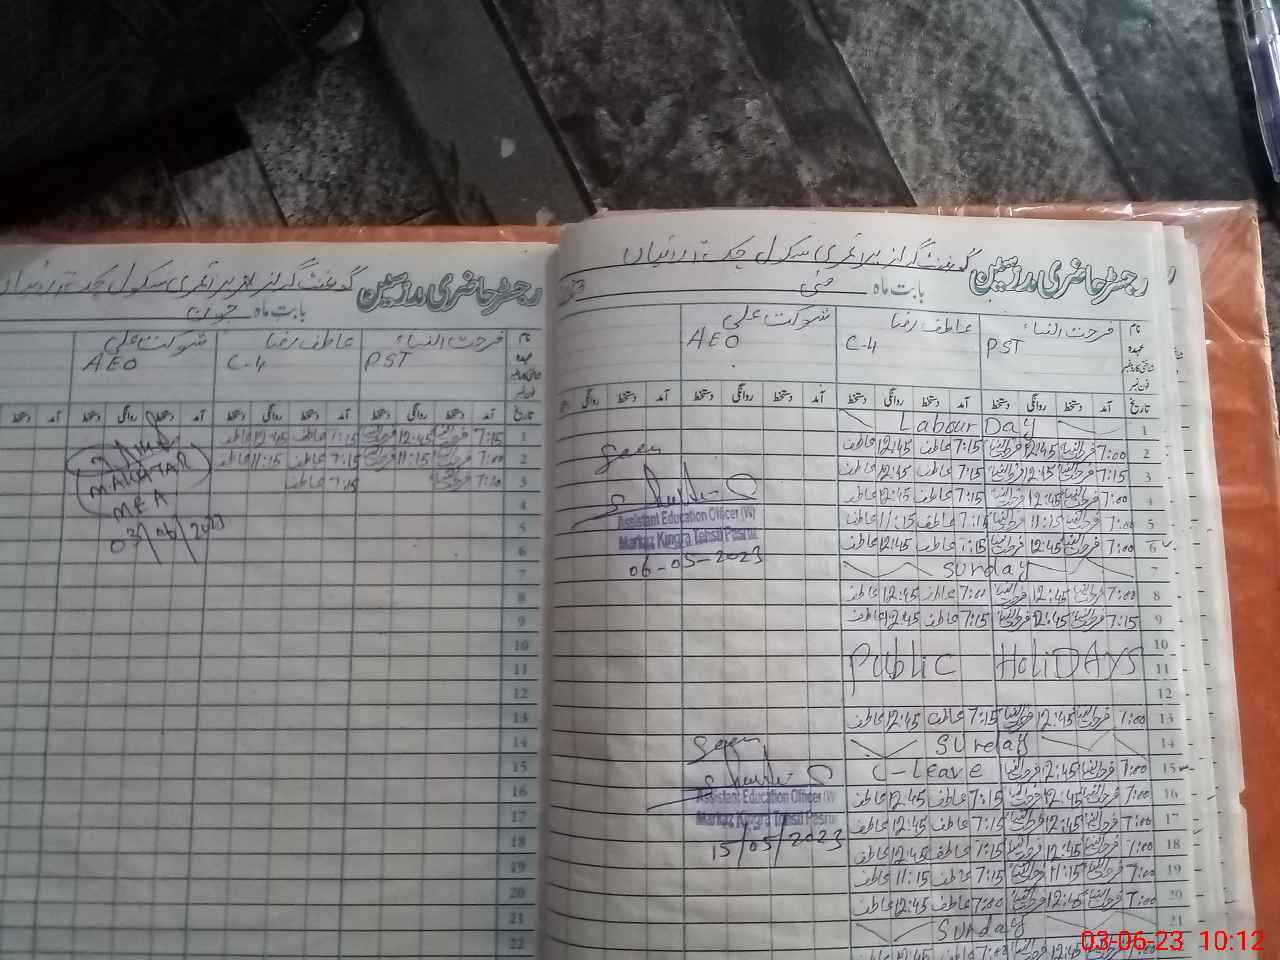 رجسٹر حاضری مدرسین گورنمنٹ گرلز پرائمری سکول چک
بابت ماہ مئی
نام فرحت النساء عاطف رضا شوکت علی
عہدہ PST C-4 AEO
تاریخ آمد دستخط روانگی دستخط آمد دستخط روانگی دستخط آمد دستخط روانگی دستخط آمد دستخط روانگی
1 Labour Day
2 7:00 فرحت النسا 12:45 فرحت النسا 7:15 عاطف 12:45 عاطف
3 7:15 فرحت النسا 12:45 فرحت النسا 7:15 عاطف 12:45 عاطف
4 7:00 فرحت النسا 12:45 فرحت النسا 7:15 عاطف 12:45 عاطف
5 7:00 فرحت النسا 11:15 فرحت النسا 7:15 عاطف 11:15 عاطف
6 7:00 فرحت النسا 12:45 فرحت النسا 7:15 عاطف 12:45 عاطف
7 Sunday
8 7:00 فرحت النسا 12:45 فرحت النسا 7:00 عاطف 12:45 عاطف
9 7:15 فرحت النسا 12:45 فرحت النسا 7:15 عاطف 12:45 عاطف
10
11 PUBLIC HoliDAYS
12
13 7:00 فرحت النسا 12:45 فرحت النسا 7:15 عاطف 12:45 عاطف
14 Sunday
15 7:00 فرحت النسا 12:45 فرحت النسا C-Leave
16 7:00 فرحت النسا 12:45 فرحت النسا 7:15 عاطف 12:45 عاطف
17 7:00 فرحت النسا 12:45 فرحت النسا 7:15 عاطف 12:45 عاطف
18 7:00 فرحت النسا 12:45 فرحت النسا 7:15 عاطف 12:45 عاطف
19 7:00 فرحت النسا 11:15 فرحت النسا 7:15 عاطف 11:15 عاطف
20 7:00 فرحت النسا 12:45 فرحت النسا 7:00 عاطف 12:45 عاطف
21 Sunday
Seen
Assistant Education Officer (W)
Markaz Kingra Tehsil Pasrur
06-05-2023
Seen
Assistant Education Officer (W
Markaz Kingra Tehsil Pasrur
15/05/2023
رجسٹر حاضری مدرسین گورنمنٹ گرلز پرائمری سکول چک
بابت ماہ جون
نام فرحت النساء عاطف رضا شوکت علی
عہدہ PST C-4 AEO
تاریخ آمد دستخط روانگی دستخط آمد دستخط روانگی دستخط آمد دستخط روانگی دستخط آمد دستخط
1 7:15 فرحت النسا 12:45 فرحت النسا 7:15 عاطف 12:45 عاطف
2 7:00 فرحت النسا 11:15 فرحت النسا 7:15 عاطف 11:15 عاطف
3 7:10 فرحت النسا 7:15 عاطف
4
5
6
7
8
9
10
11
12
13
14
15
16
17
18
19
20
21
22
MEA
03/06/2023
03-06-23 10:12